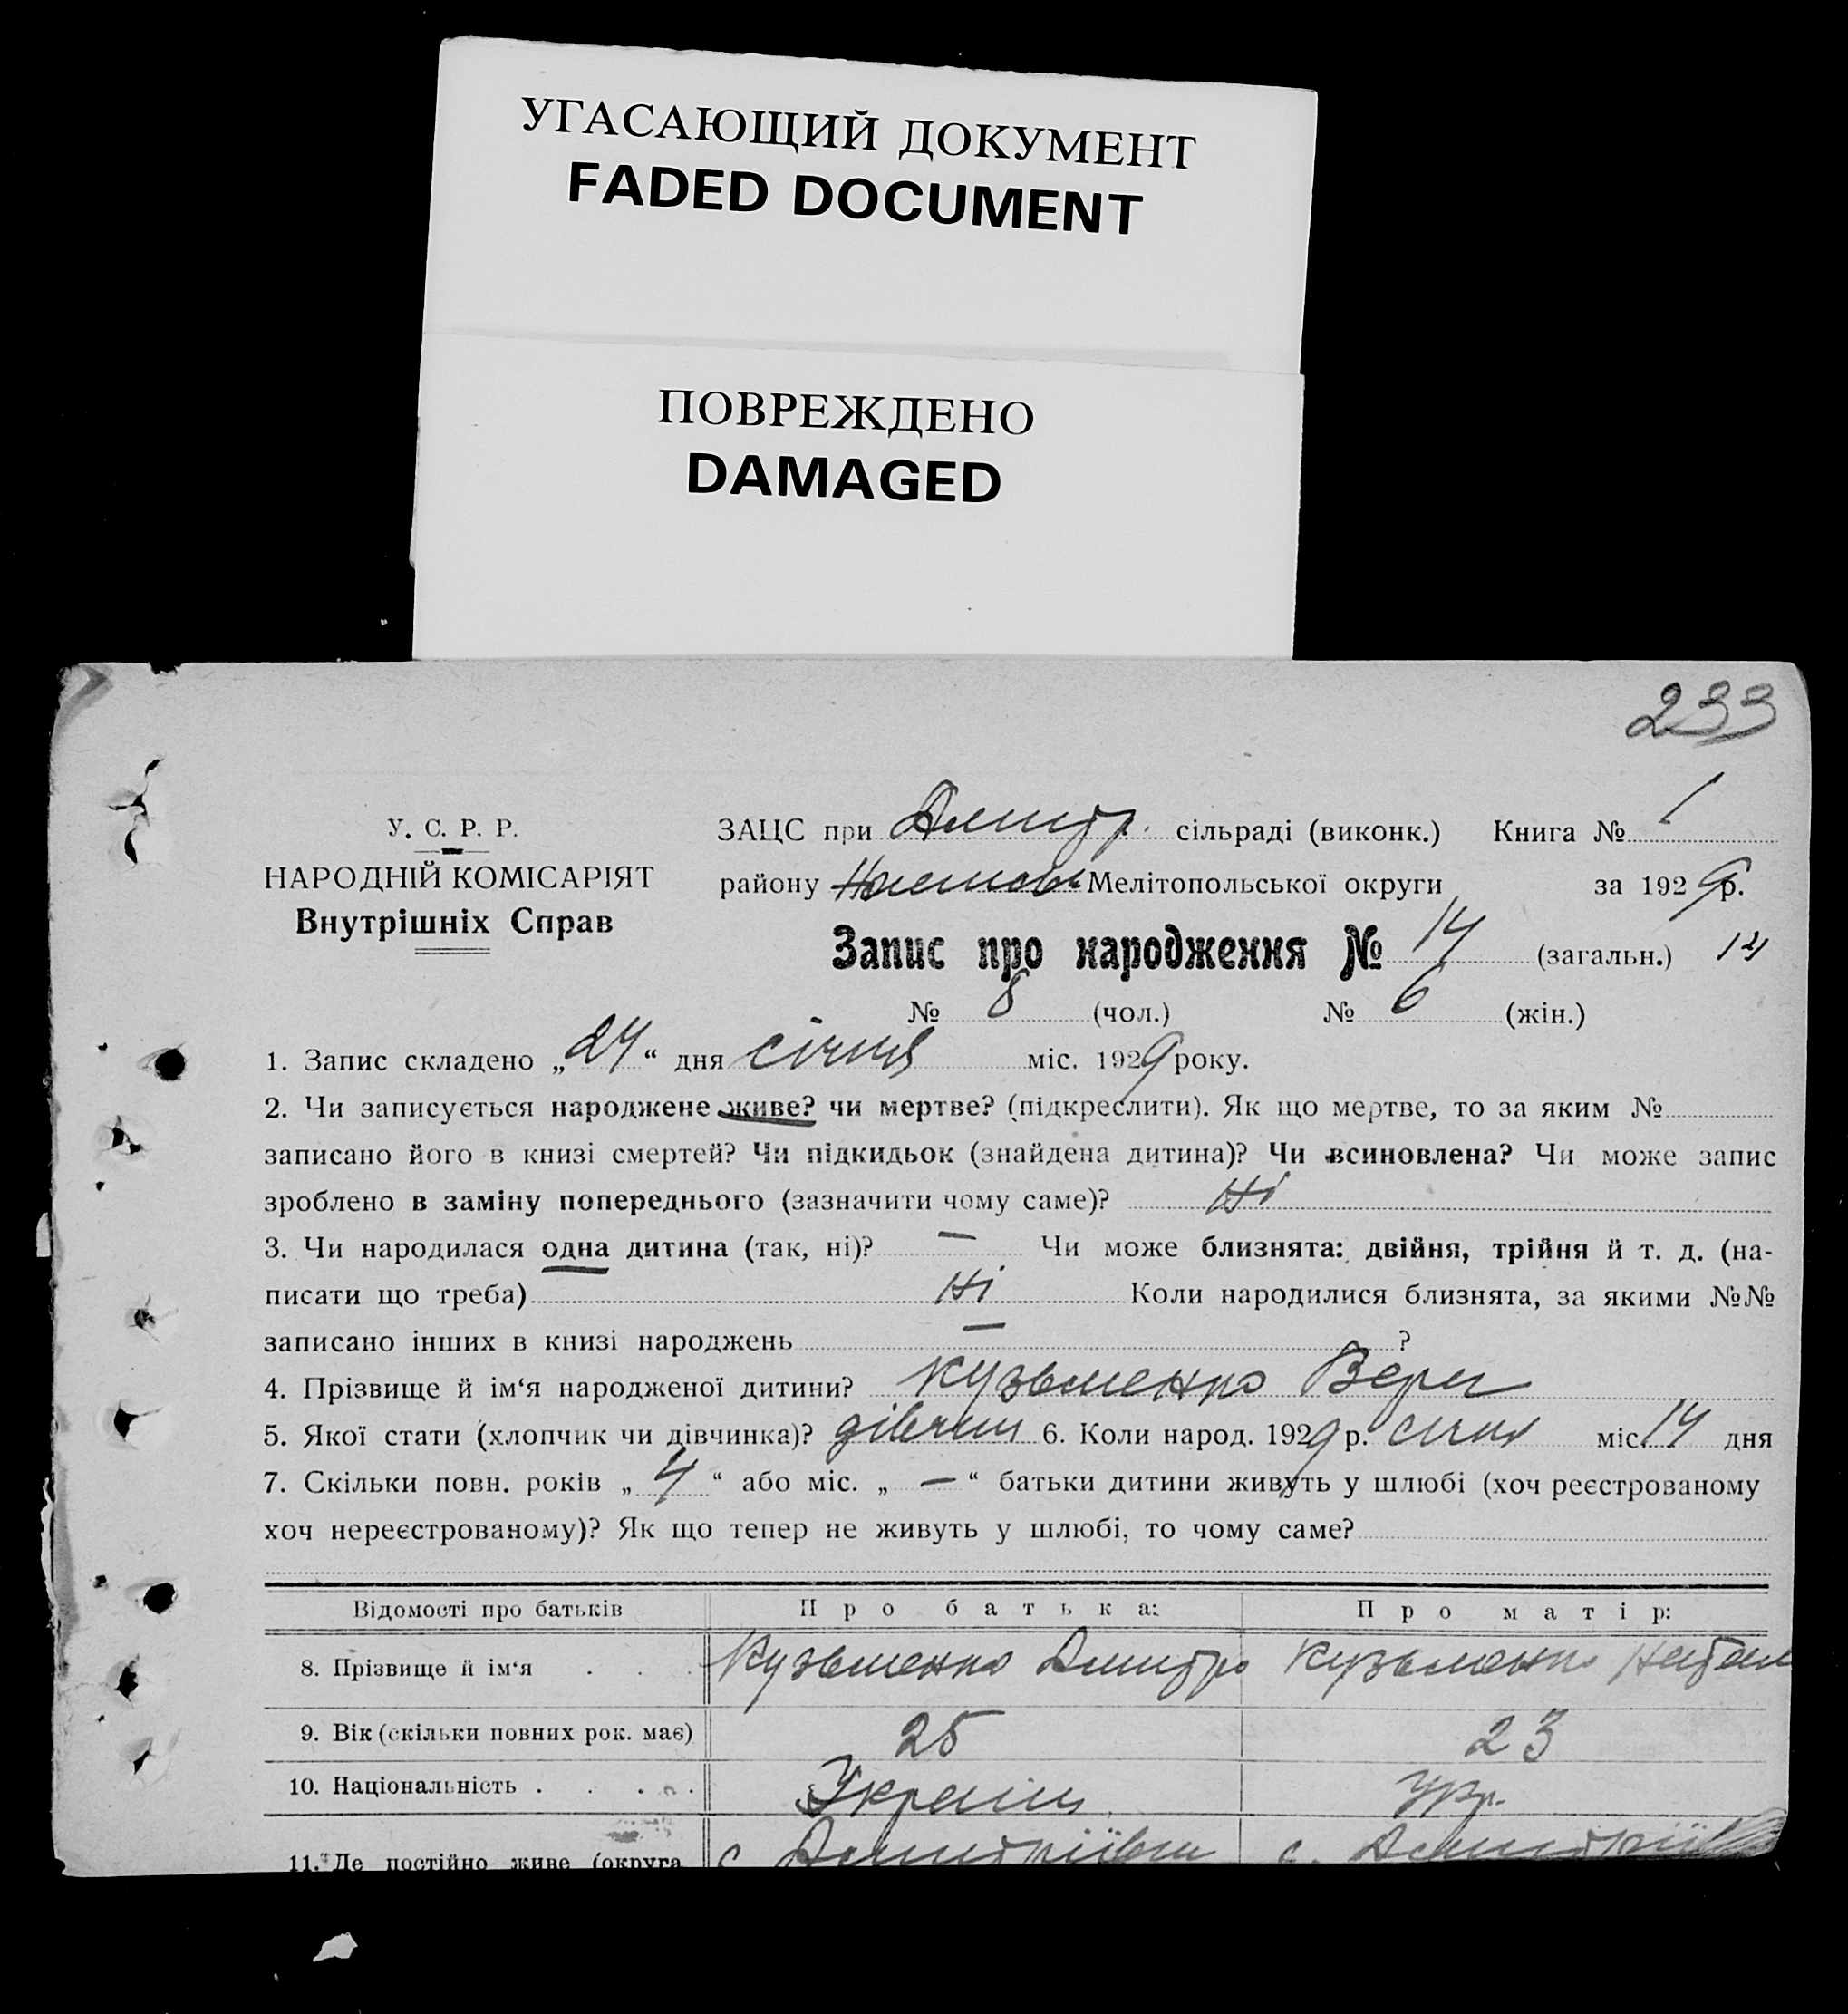 УГАСАЮЩИЙ ДОКУМЕНТ
FADED DOCUMENT
ПОВРЕЖДЕНО
DAMAGED
233
У. С. Р. Р.
НАРОДНІЙ КОМІСАРІЯТ
Внутрішніх Справ
ЗАЦС при Дмитр. сільраді (виконк.) Книга № 1
району Мелітопольської округи за 1929 р.
Запис про народження № 14 (загальн.) 14
№ 8 (чол.) № 6 (жін.)
1. Запис складено „24“ дня січня міс. 1929 року.
2. Чи записується народжене живе? чи мертве? (підкреслити). Як що мертве, то за яким №
записано його в книзі смертей? Чи підкидьок (знайдена дитина)? Чи всиновлена? Чи може запис
зроблено в заміну попереднього (зазначити чому саме)? Ні
3. Чи народилася одна дитина (так, ні)? — Чи може близнята: двійня, трійня й т. д. (на-
писати що треба) Ні Коли народилися близнята, за якими №№
записано інших в книзі народжень — ?
4. Прізвище й ім‘я народженої дитини? Кузьменко Вера
5. Якої стати (хлопчик чи дівчинка)? дівчин 6. Коли народ. 1929 р. січня міс. 14 дня
7. Скільки повн. років „4“ або міс. „—“ батьки дитини живуть у шлюбі (хоч реєстрованому
хоч нереєстрованому)? Як що тепер не живуть у шлюбі, то чому саме?
Відомості про батьків Про батька: Про матір:
8. Прізвище й ім‘я . . . Кузьменко Дмитро Кузьменко Натал
9. Вік (скільки повних рок. має) 25 23
10. Національність . . . . Україн Укр.
11. Де постійно живе (округа, с. Дмитріївка с. Дмитріївка